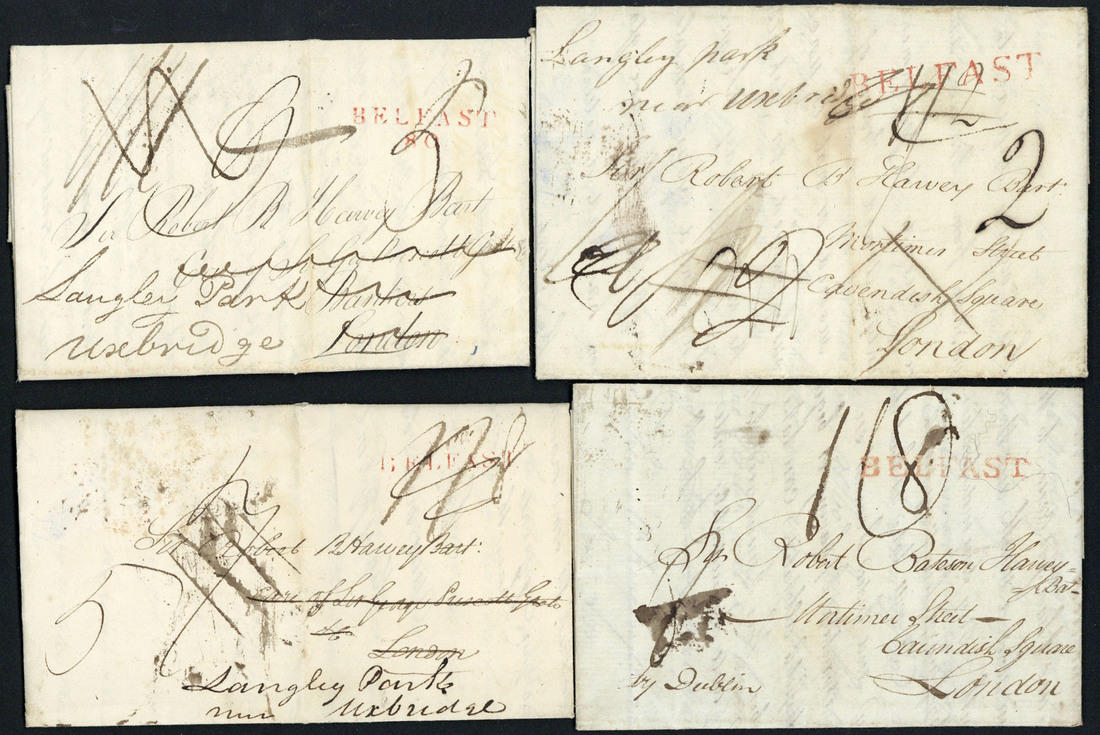 BELFAST
80
3
Sir Robert B Harvey Bart
Langley Park
London
Uxbridge
Langley park
near Uxbridge
BELFAST
2
Sir Robert B Harvey Bart
Mortimer Street
Cavendish Square
London
BELFAST
Robert B Harvey Bart:
5
Care of Sir George Prescott
London
Langley Park
Uxbridge
1/8
BELFAST
Sir Robert Bateson Harvey
Bat
Mortimer Street
Cavindish Square
by Dublin
London